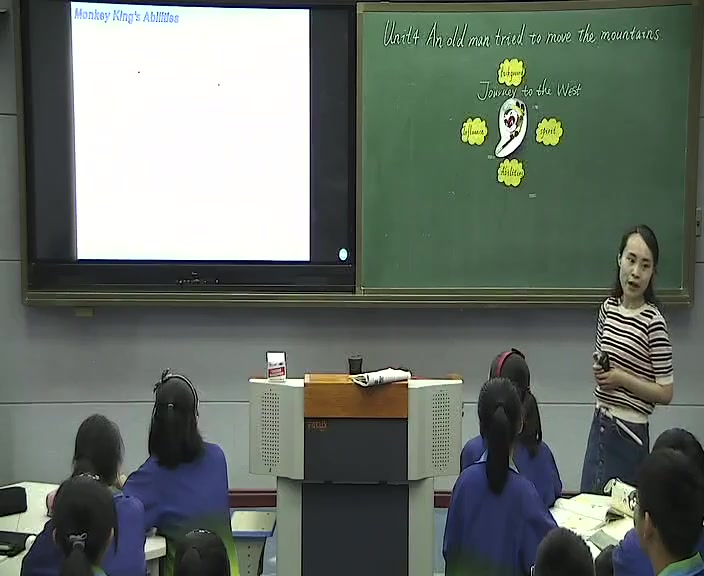 Monkey King's Abilities
Unit4 An old man tried to move the mountains
Background
Journey to the West
Influence
spirit
Abilities